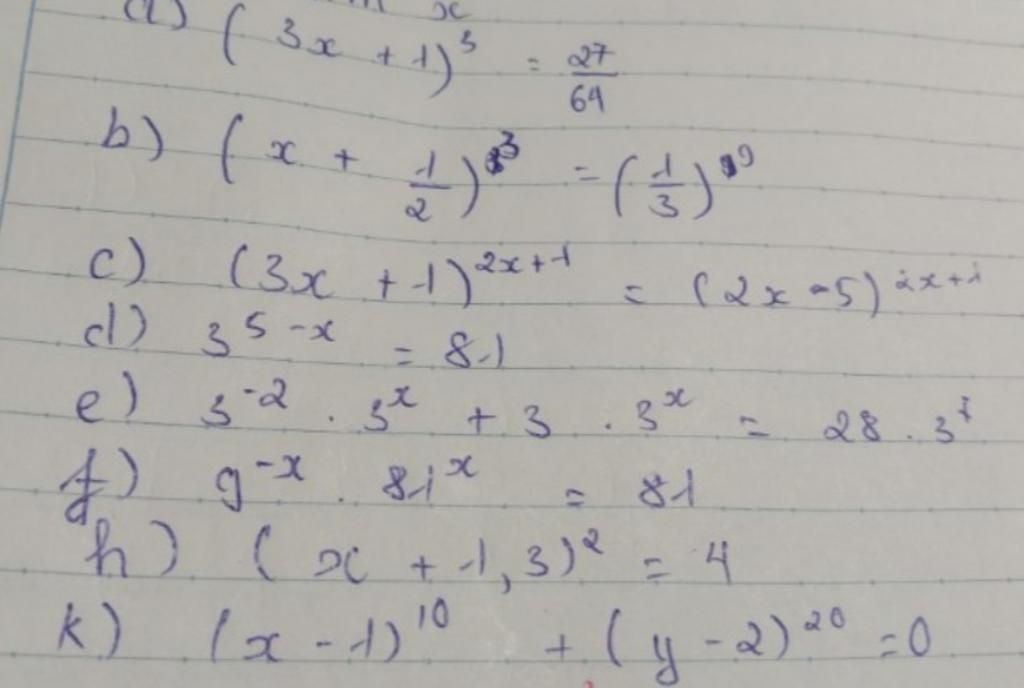 x
a) (3x + 1)³ = 27/64
b) (x + 1/2)³ = (1/3)⁹
c) (3x + 1)²ˣ⁺¹ = (2x - 5)²ˣ⁺¹
d) 3⁵⁻ˣ = 81
e) 3⁻² . 3ˣ + 3 . 3ˣ = 28 . 3⁷
f) 9⁻ˣ . 81ˣ = 81
h) (x + 1,3)² = 4
k) (x - 1)¹⁰ + (y - 2)²⁰ = 0